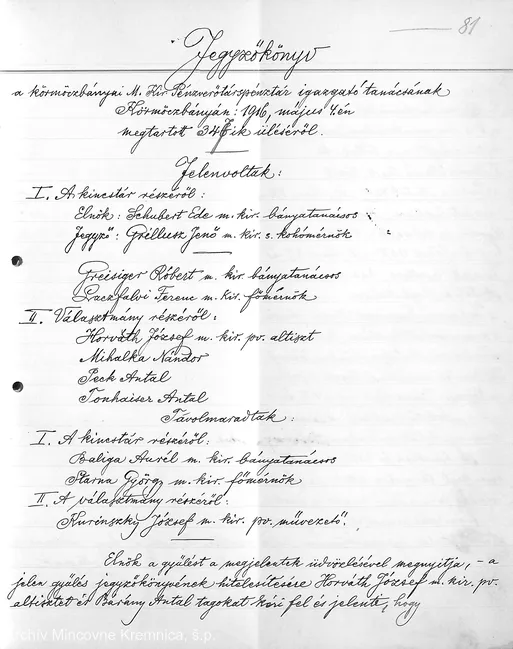 81
Jegyzőkönyv
a körmöczbányai M. Kir Pénzverőtárspénztár igazgató tanácsának
Körmöczbányán: 1916, május 4.én
megtartott 34 ik üléséről.
Jelenvoltak:
I. A kincstár részéről:
Elnök: Schubert Ede m. kir. bányatanácsos
Jegyző: Gréllusz Jenő m. kir. s. kohómérnök
Greisiger Róbert m. kir. bányatanácsos
Laczfalvi Ferenc m. Kir. főmérnök
II. Választmány részéről:
Horváth József m. kir. pv. altiszt
Mihalka Nándor
Peck Antal
Tonhaiser Antal
Távolmaradtak:
I. A kincstár részéről:
Baliga Aurél m. kir. bányatanácsos
Starna György m. kir. főmérnök
II. A választmány részéről:
Kurénszky József m. kir. pv. művezető.
Elnök a gyűlést a megjelentek üdvözlésével megnyitja, - a
jelen gyűlés jegyzőkönyvének hitelesítésére Horváth József m. kir. pv.
altisztet és Bárány Antal tagokat kéri fel és jelenti, hogy
Archív Mincovne Kremnica, š.p.